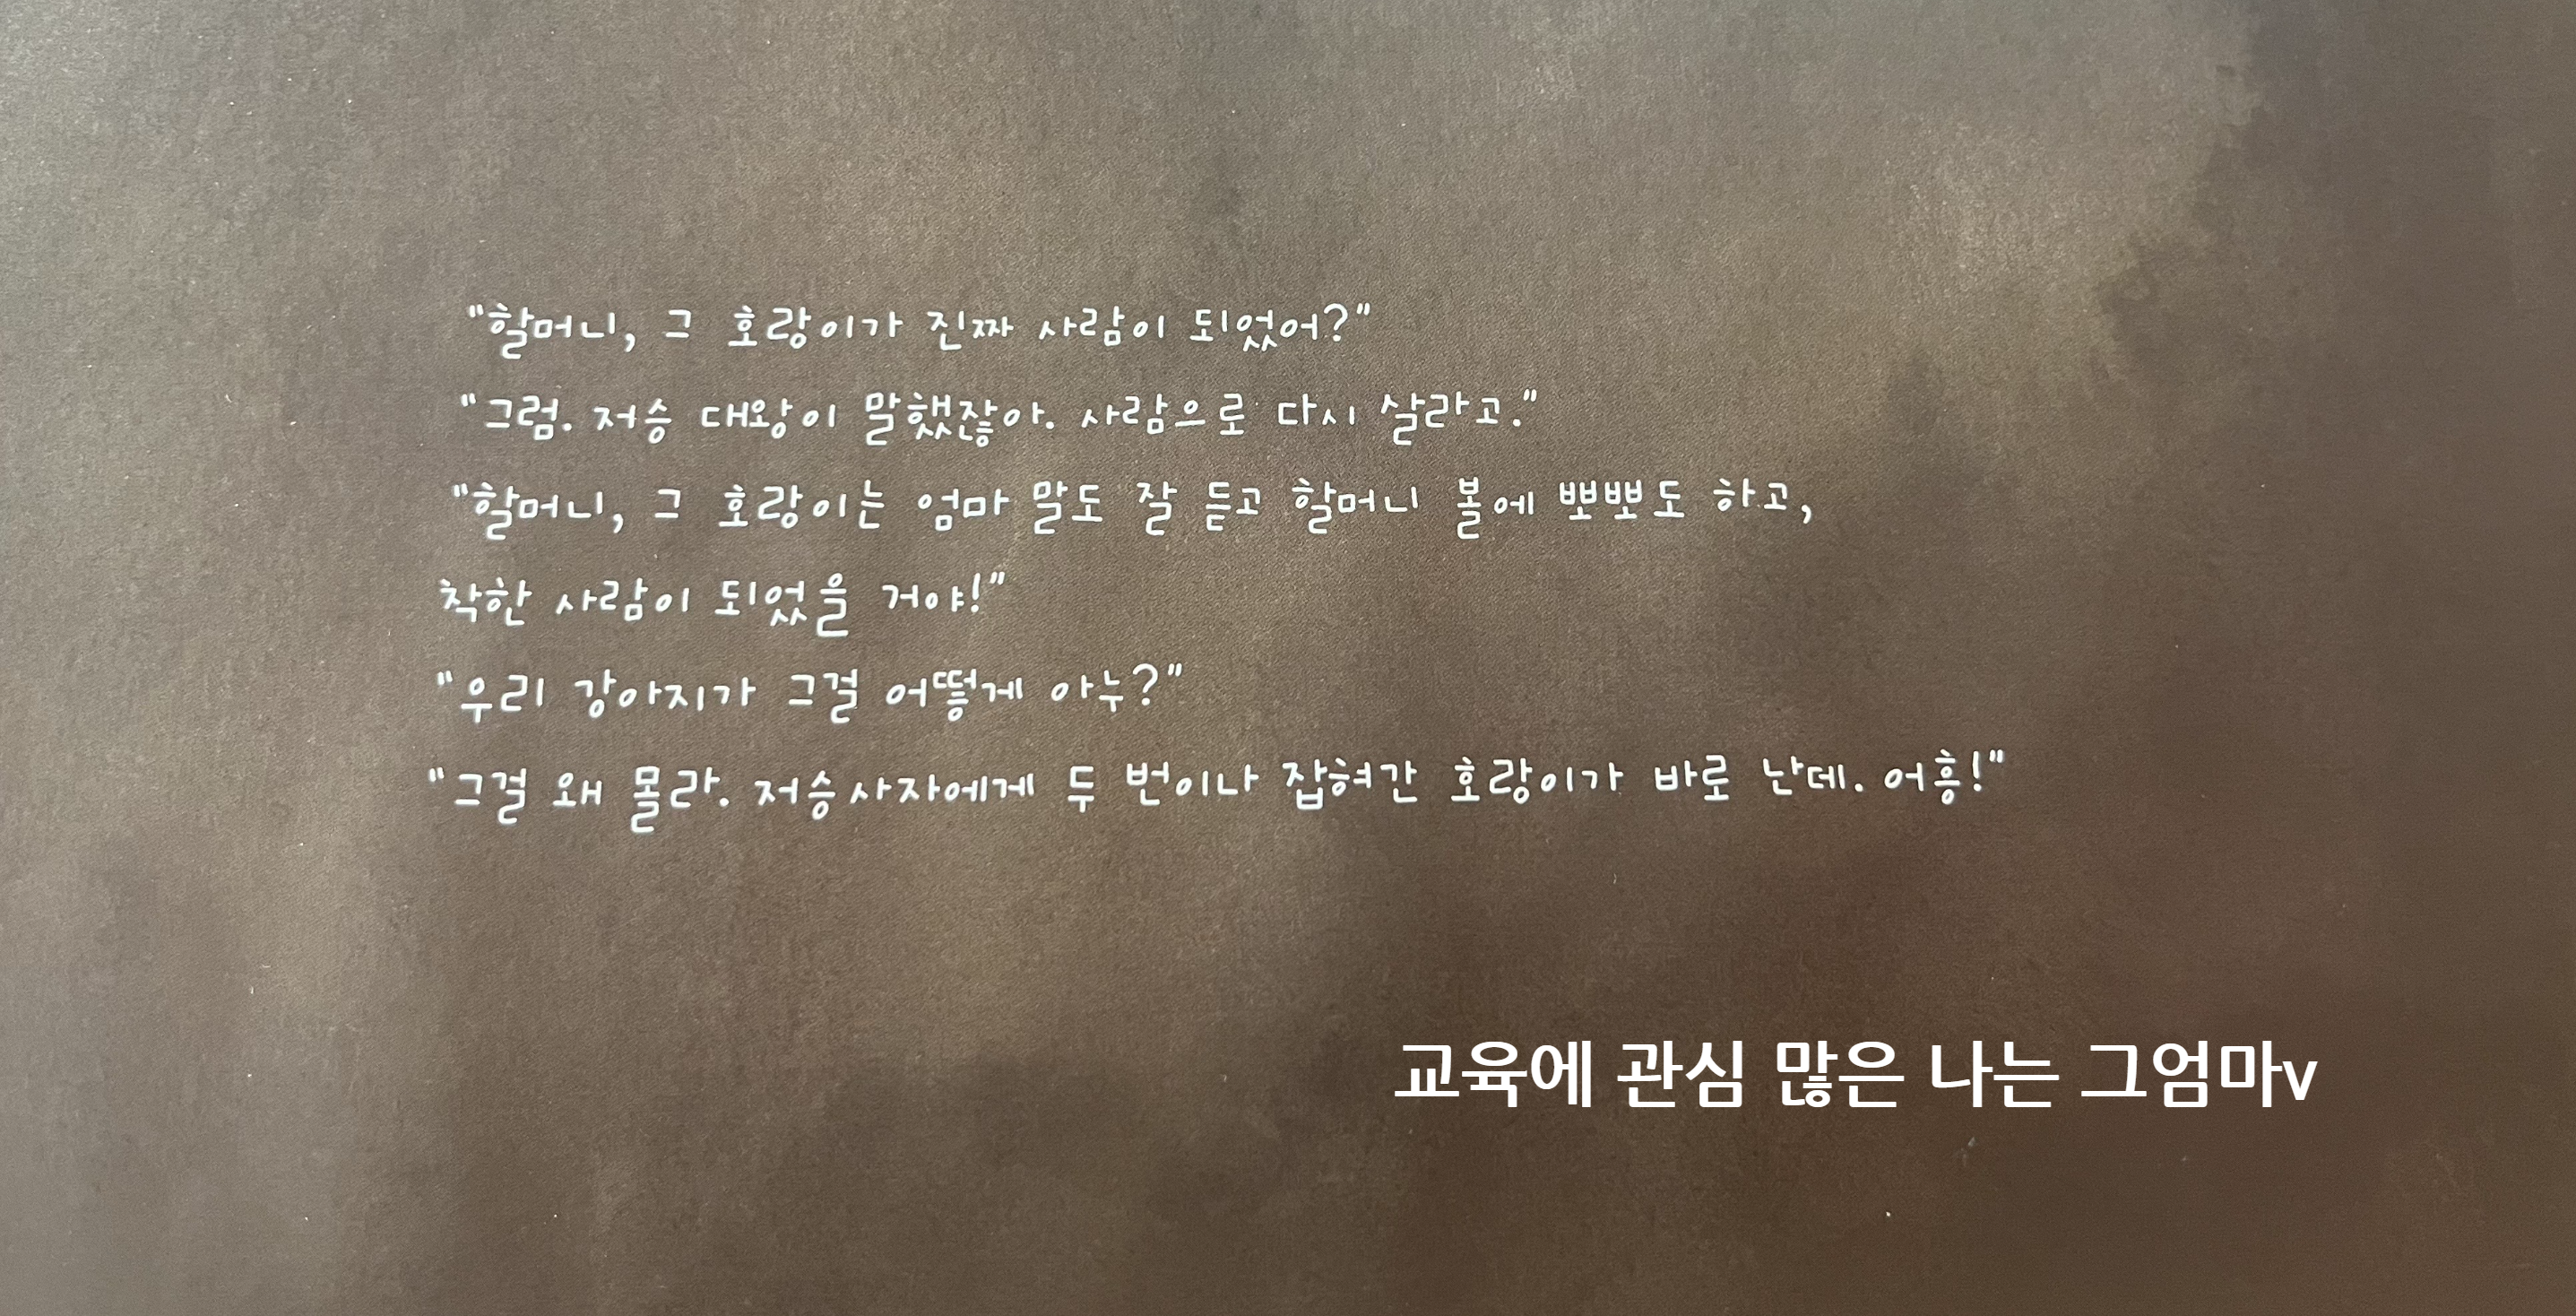 "할머니, 그 호랑이가 진짜 사람이 되었어?"
"그럼. 저승 대왕이 말했잖아. 사람으로 다시 살라고."
"할머니, 그 호랑이는 엄마 말도 잘 듣고 할머니 볼에 뽀뽀도 하고,
착한 사람이 되었을 거야!"
"우리 강아지가 그걸 어떻게 아누?"
"그걸 왜 몰라. 저승사자에게 두 번이나 잡혀간 호랑이가 바로 난데. 어흥!"
교육에 관심 많은 나는 그엄마v